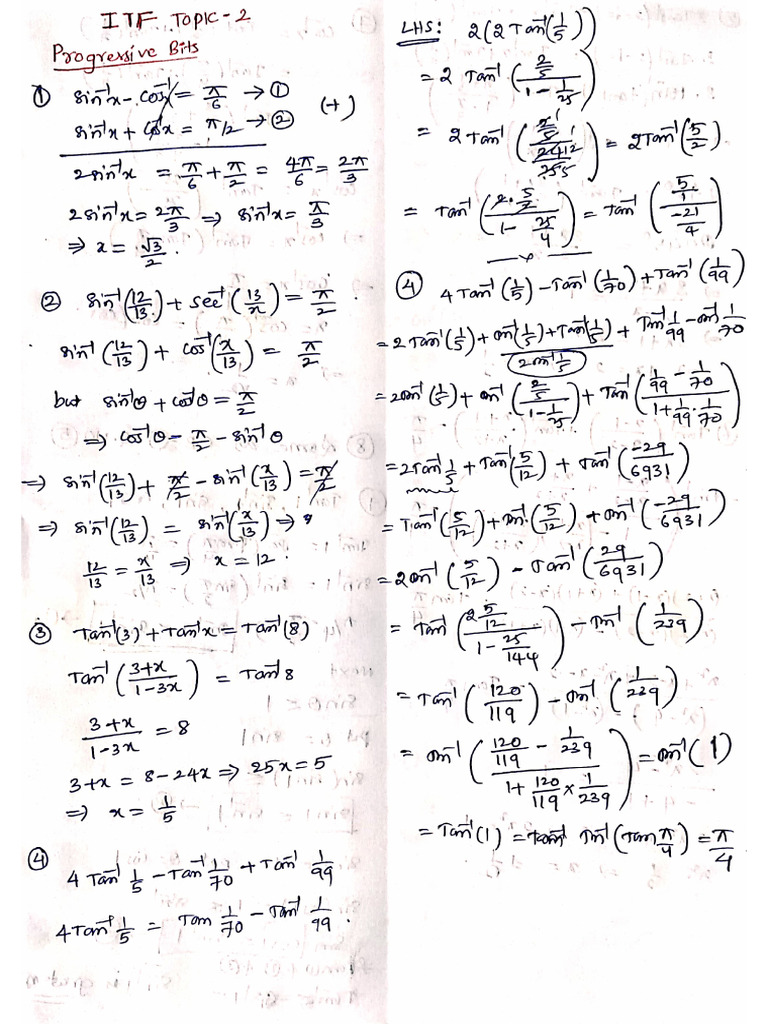 ITF Topic-2
Progressive Bits
① sin⁻¹x - cos⁻¹x = π/6 → ①
sin⁻¹x + cos⁻¹x = π/2 → ② (+)
2sin⁻¹x = π/6 + π/2 = 4π/6 = 2π/3
2sin⁻¹x = 2π/3 ⇒ sin⁻¹x = π/3
⇒ x = √3/2.
② sin⁻¹(12/13) + sec⁻¹(13/x) = π/2.
sin⁻¹(12/13) + cos⁻¹(x/13) = π/2
but sin⁻¹θ + cos⁻¹θ = π/2
⇒ cos⁻¹θ - π/2 - sin⁻¹θ
⇒ sin⁻¹(12/13) + π/2 - sin⁻¹(x/13) = π/2
⇒ sin⁻¹(12/13) = sin⁻¹(x/13) ⇒
12/13 = x/13 ⇒ x = 12.
③ Tan⁻¹(3) + Tan⁻¹x = Tan⁻¹(8)
Tan⁻¹((3+x)/(1-3x)) = Tan⁻¹8
(3+x)/(1-3x) = 8
3+x = 8-24x ⇒ 25x = 5
⇒ x = 1/5
④ 4Tan⁻¹ 1/5 - Tan⁻¹ 1/70 + Tan⁻¹ 1/99
4Tan⁻¹ 1/5 = Tan 1/70 - Tan⁻¹ 1/99.
LHS: 2(2Tan⁻¹(1/5))
= 2 Tan⁻¹((2/5)/(1 - 1/25))
= 2Tan⁻¹((2/5)/(24/25)) = 2Tan⁻¹(5/2)
= Tan⁻¹((2·5/2)/(1 - 25/4)) = Tan⁻¹((5/1)/(-21/4))
④ 4Tan⁻¹(1/5) - Tan⁻¹(1/70) + Tan⁻¹(1/99)
= 2Tan⁻¹(1/5) + Tan⁻¹(1/5) + Tan⁻¹(1/5) + Tan⁻¹ 1/99 - Tan⁻¹ 1/70
2Tan⁻¹ 1/5
= 2Tan⁻¹(1/5) + Tan⁻¹((2/5)/(1 - 1/25)) + Tan⁻¹((1/99 - 1/70)/(1 + 1/99 · 1/70))
= 2Tan⁻¹ 1/5 + Tan⁻¹(5/12) + Tan⁻¹(-29/6931)
= Tan⁻¹(5/12) + Tan⁻¹(5/12) + Tan⁻¹(-29/6931)
= 2Tan⁻¹(5/12) - Tan⁻¹(29/6931)
= Tan⁻¹((2 5/12)/(1 - 25/144)) - Tan⁻¹(1/239)
= Tan⁻¹(120/119) - Tan⁻¹(1/239)
= Tan⁻¹((120/119 - 1/239)/(1 + 120/119 × 1/239)) = Tan⁻¹(1)
= Tan⁻¹(1) = Tan⁻¹ Tan⁻¹(Tan π/4) = π/4